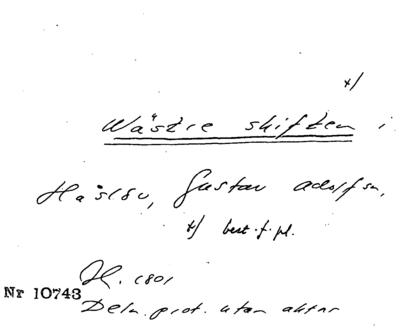 x/
Wästre skiften i
Haslöv, Gustav Adolf sn,
x/ best. f. pl.
H. 1801
Nr 10743
Deln. prot. utan aktnr